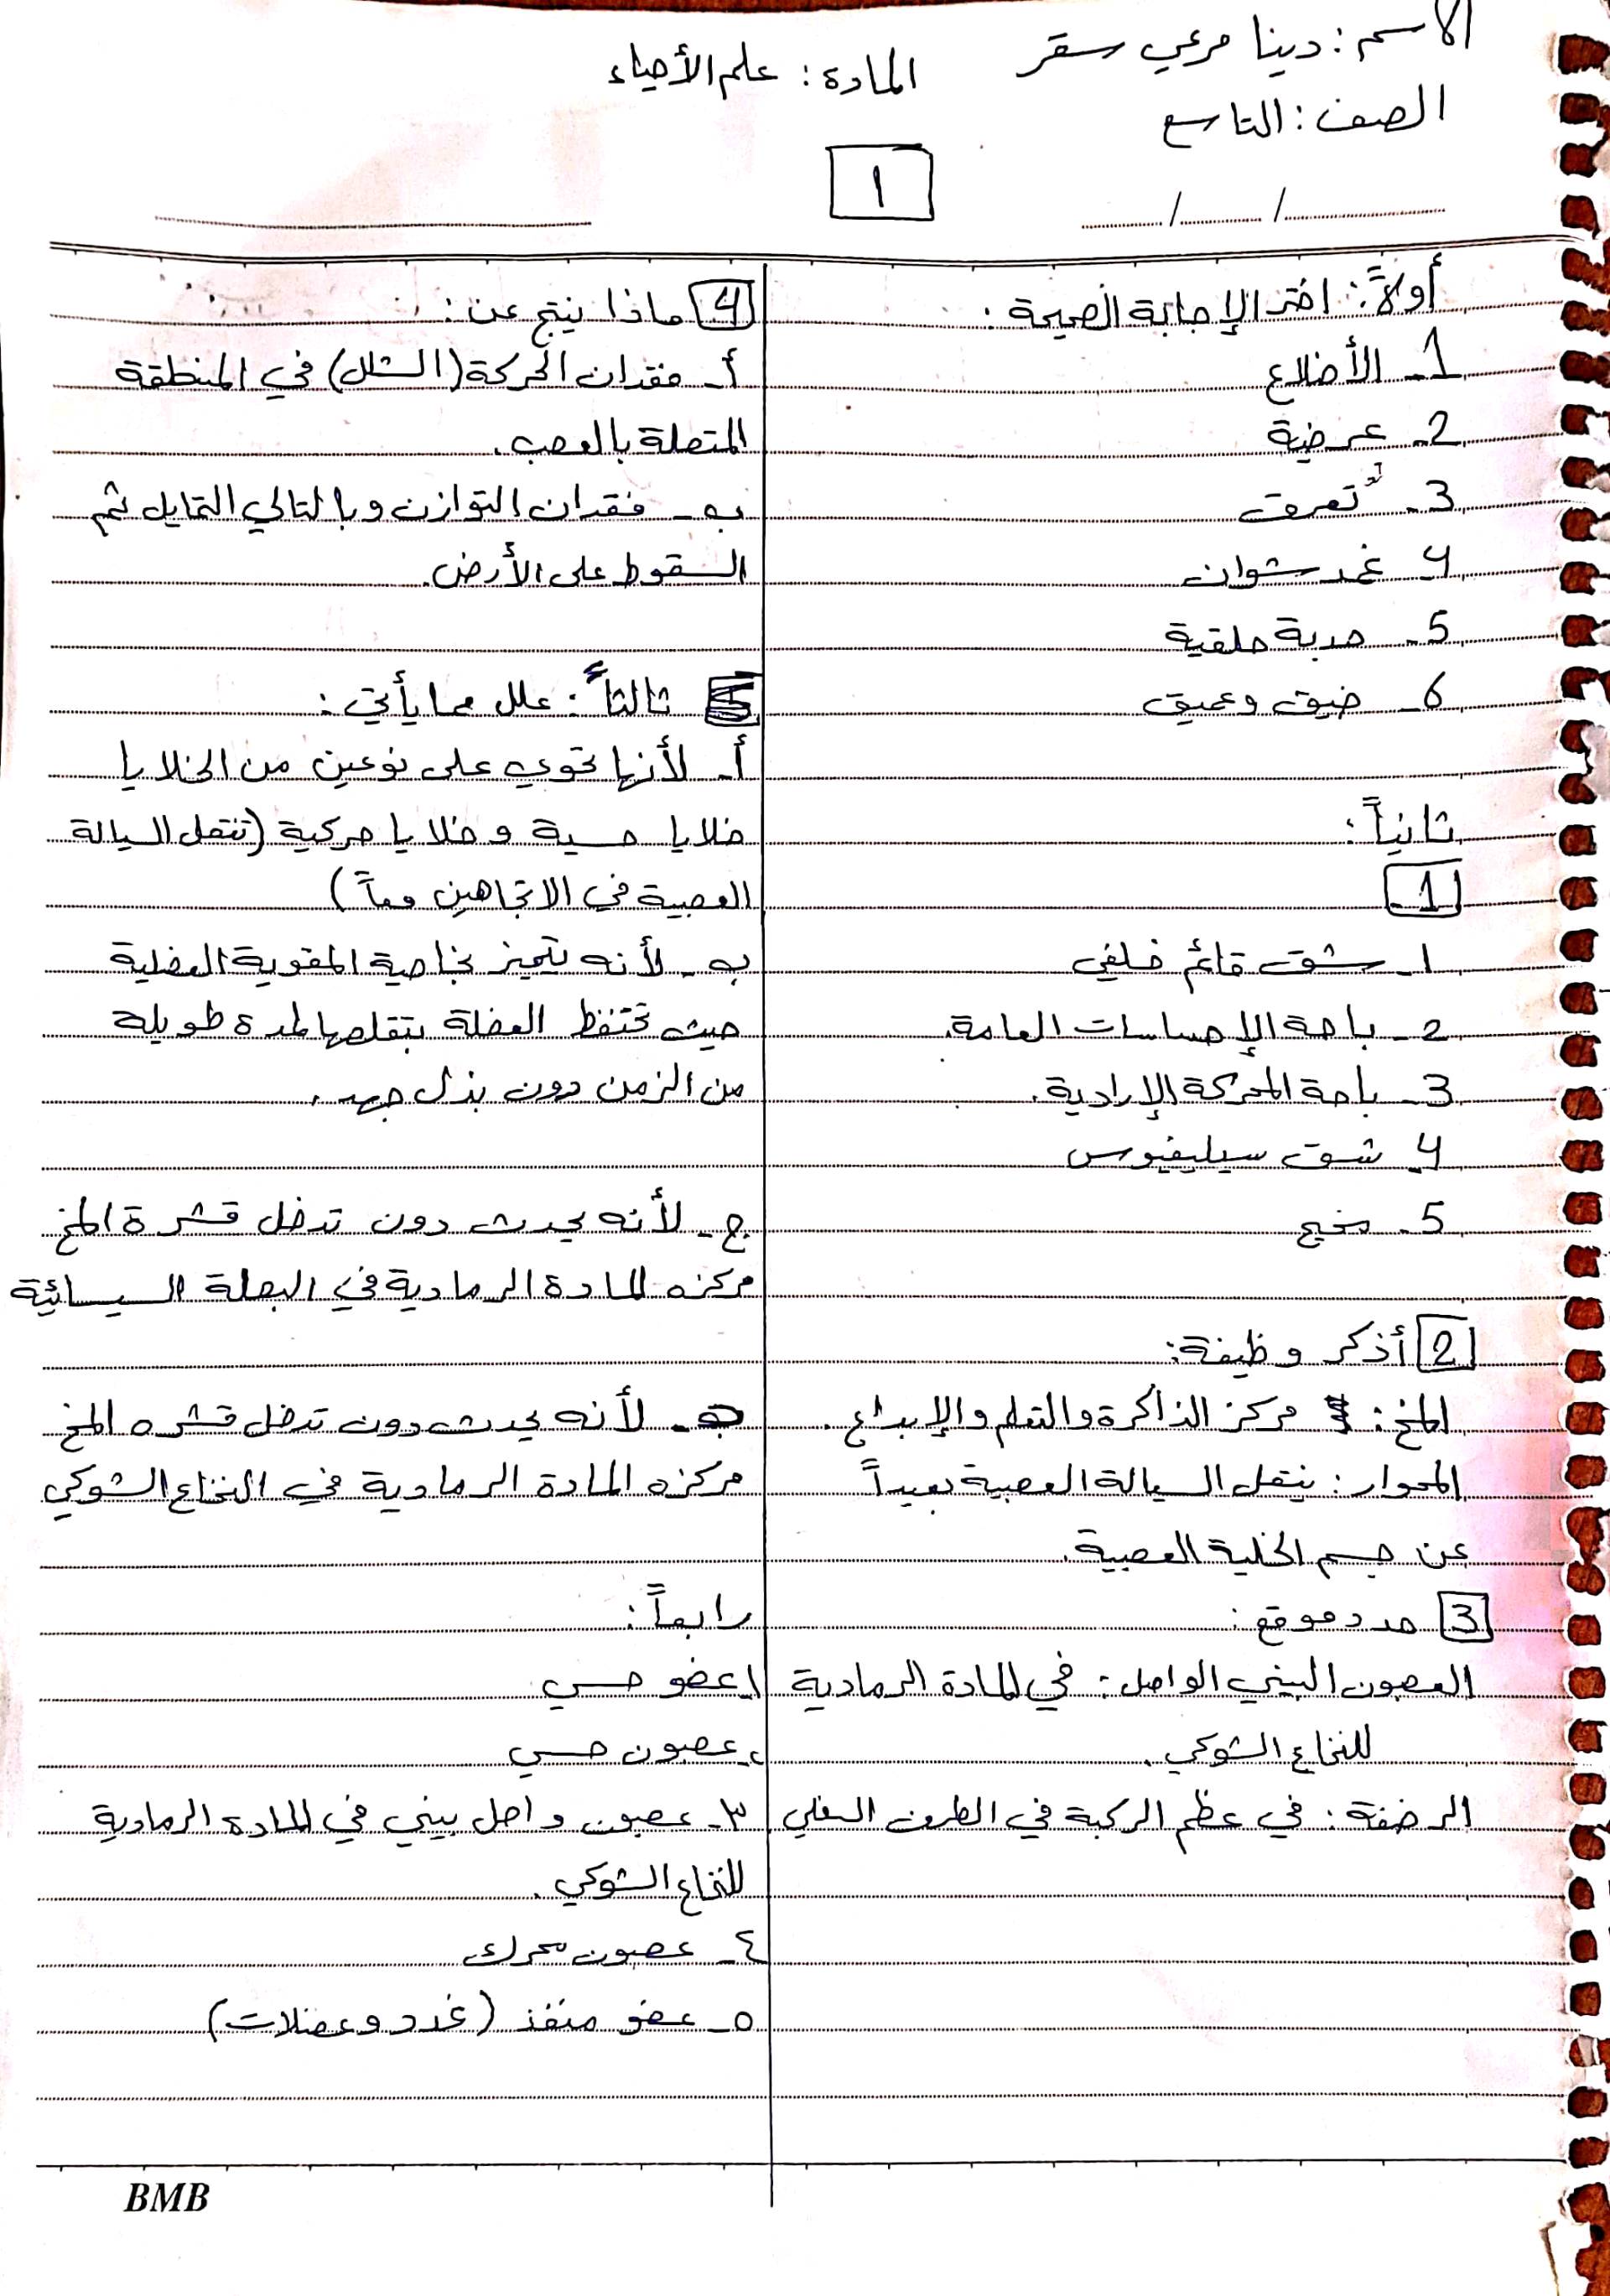 الاسم: دينا مرعي سقر
المادة: علم الأحياء
الصف: التاسع
١
أولاً: اختر الإجابة الصحيحة:
1- الأضلاع
2- عرضية
3- تعرق
4- غمد شوان
5- حدبة حلقية
6- ضيق وعميق
ثانياً:
1
1- شق قائم خلفي
2- باحة الإحساسات العامة.
3- باحة المحركة الإرادية.
4- شق سيليفيوس
5- مخيخ
2 أذكر وظيفة:
المخ: مركز الذاكرة والتعلم والإبداع.
المحوار: ينقل السيالة العصبية بعيداً
عن جسم الخلية العصبية.
3 حدد موقع:
العصبون البيني الواصل: في المادة الرمادية
للنخاع الشوكي.
الرضفة: في عظم الركبة في الطرف السفلي
4 ماذا ينتج عن:
أ- فقدان الحركة (الشلل) في المنطقة
المتصلة بالعصب.
ب- فقدان التوازن وبالتالي التمايل ثم
السقوط على الأرض.
ثالثاً: علل مما يأتي:
أ- لأنها تحوي على نوعين من الخلايا
خلايا حسية و خلايا حركية (تنتقل السيالة
العصبية في الاتجاهين معاً)
ب- لأنه يتميز بخاصية المقوية العضلية
حيث تحتفظ العضلة بتقلصها لمدة طويلة
من الزمن دون بذل جهد.
ج- لأنه يحدث دون تدخل قشرة المخ
مركزه المادة الرمادية في البصلة السيسائية
لأنه يحدث دون تدخل قشره المخ
مركزه المادة الرمادية في النخاع الشوكي
رابعاً:
١- عضو حسي
٢- عصبون حسي
٣- عصبون واصل بيني في المادة الرمادية
للنخاع الشوكي.
٤- عصبون محرك
٥- عضو منفذ (غدد وعضلات)
BMB